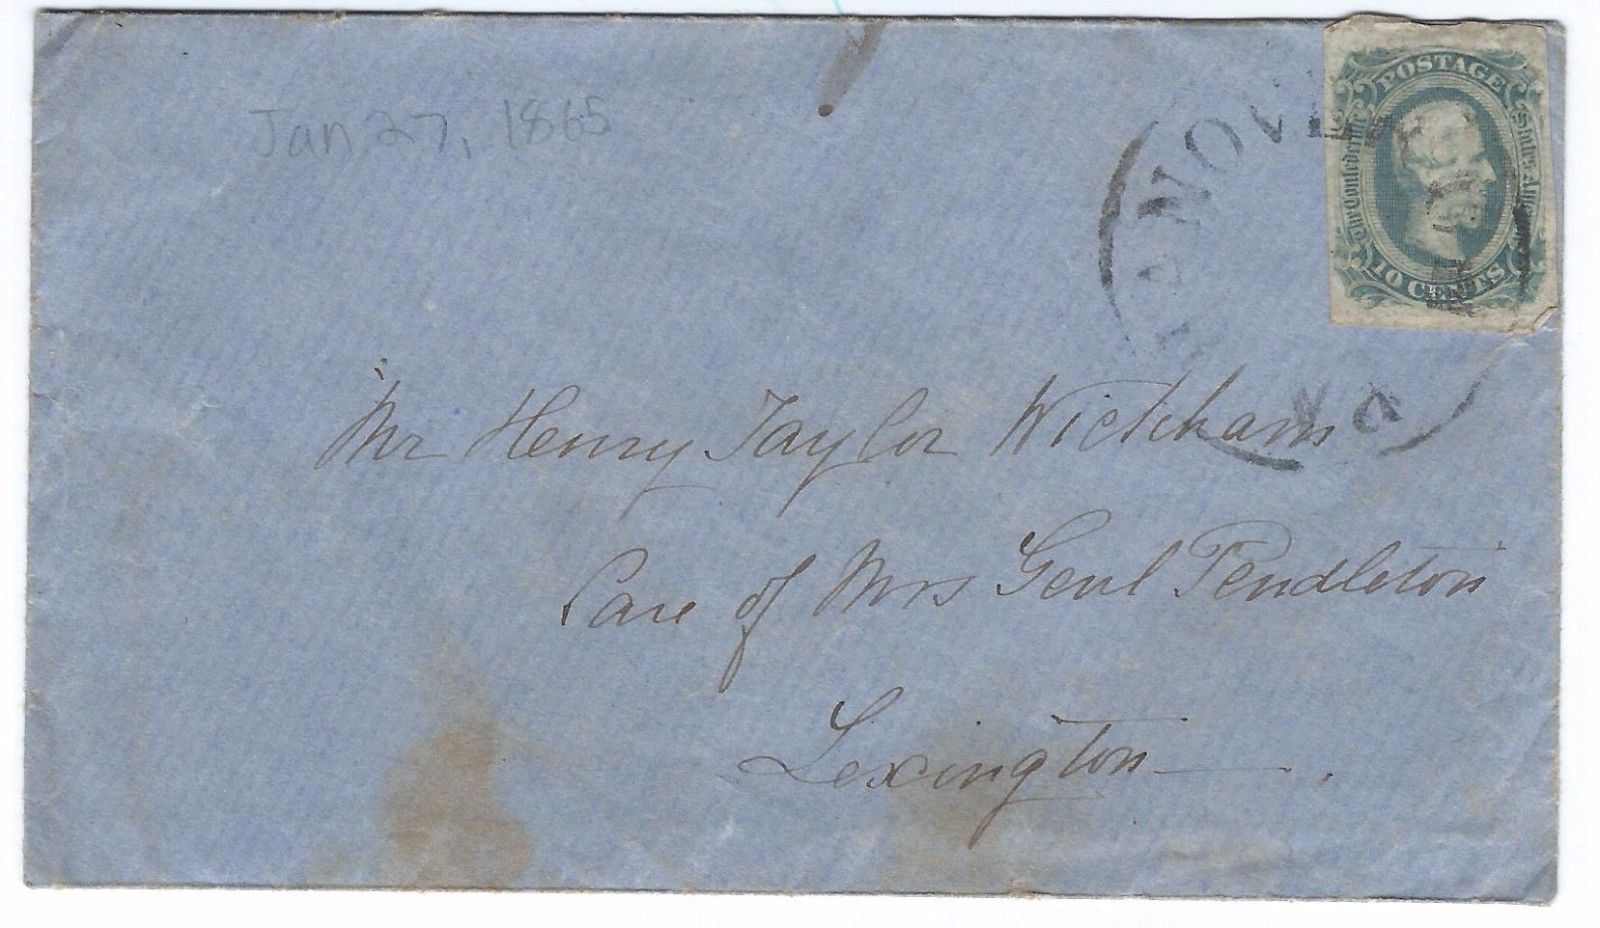 Jan 27, 1865
POSTAGE
The Confederate States
10 CENTS
HANOVE
Mr Henry Taylor Wickham
Care of Mrs Genl Pendleton
Lexington